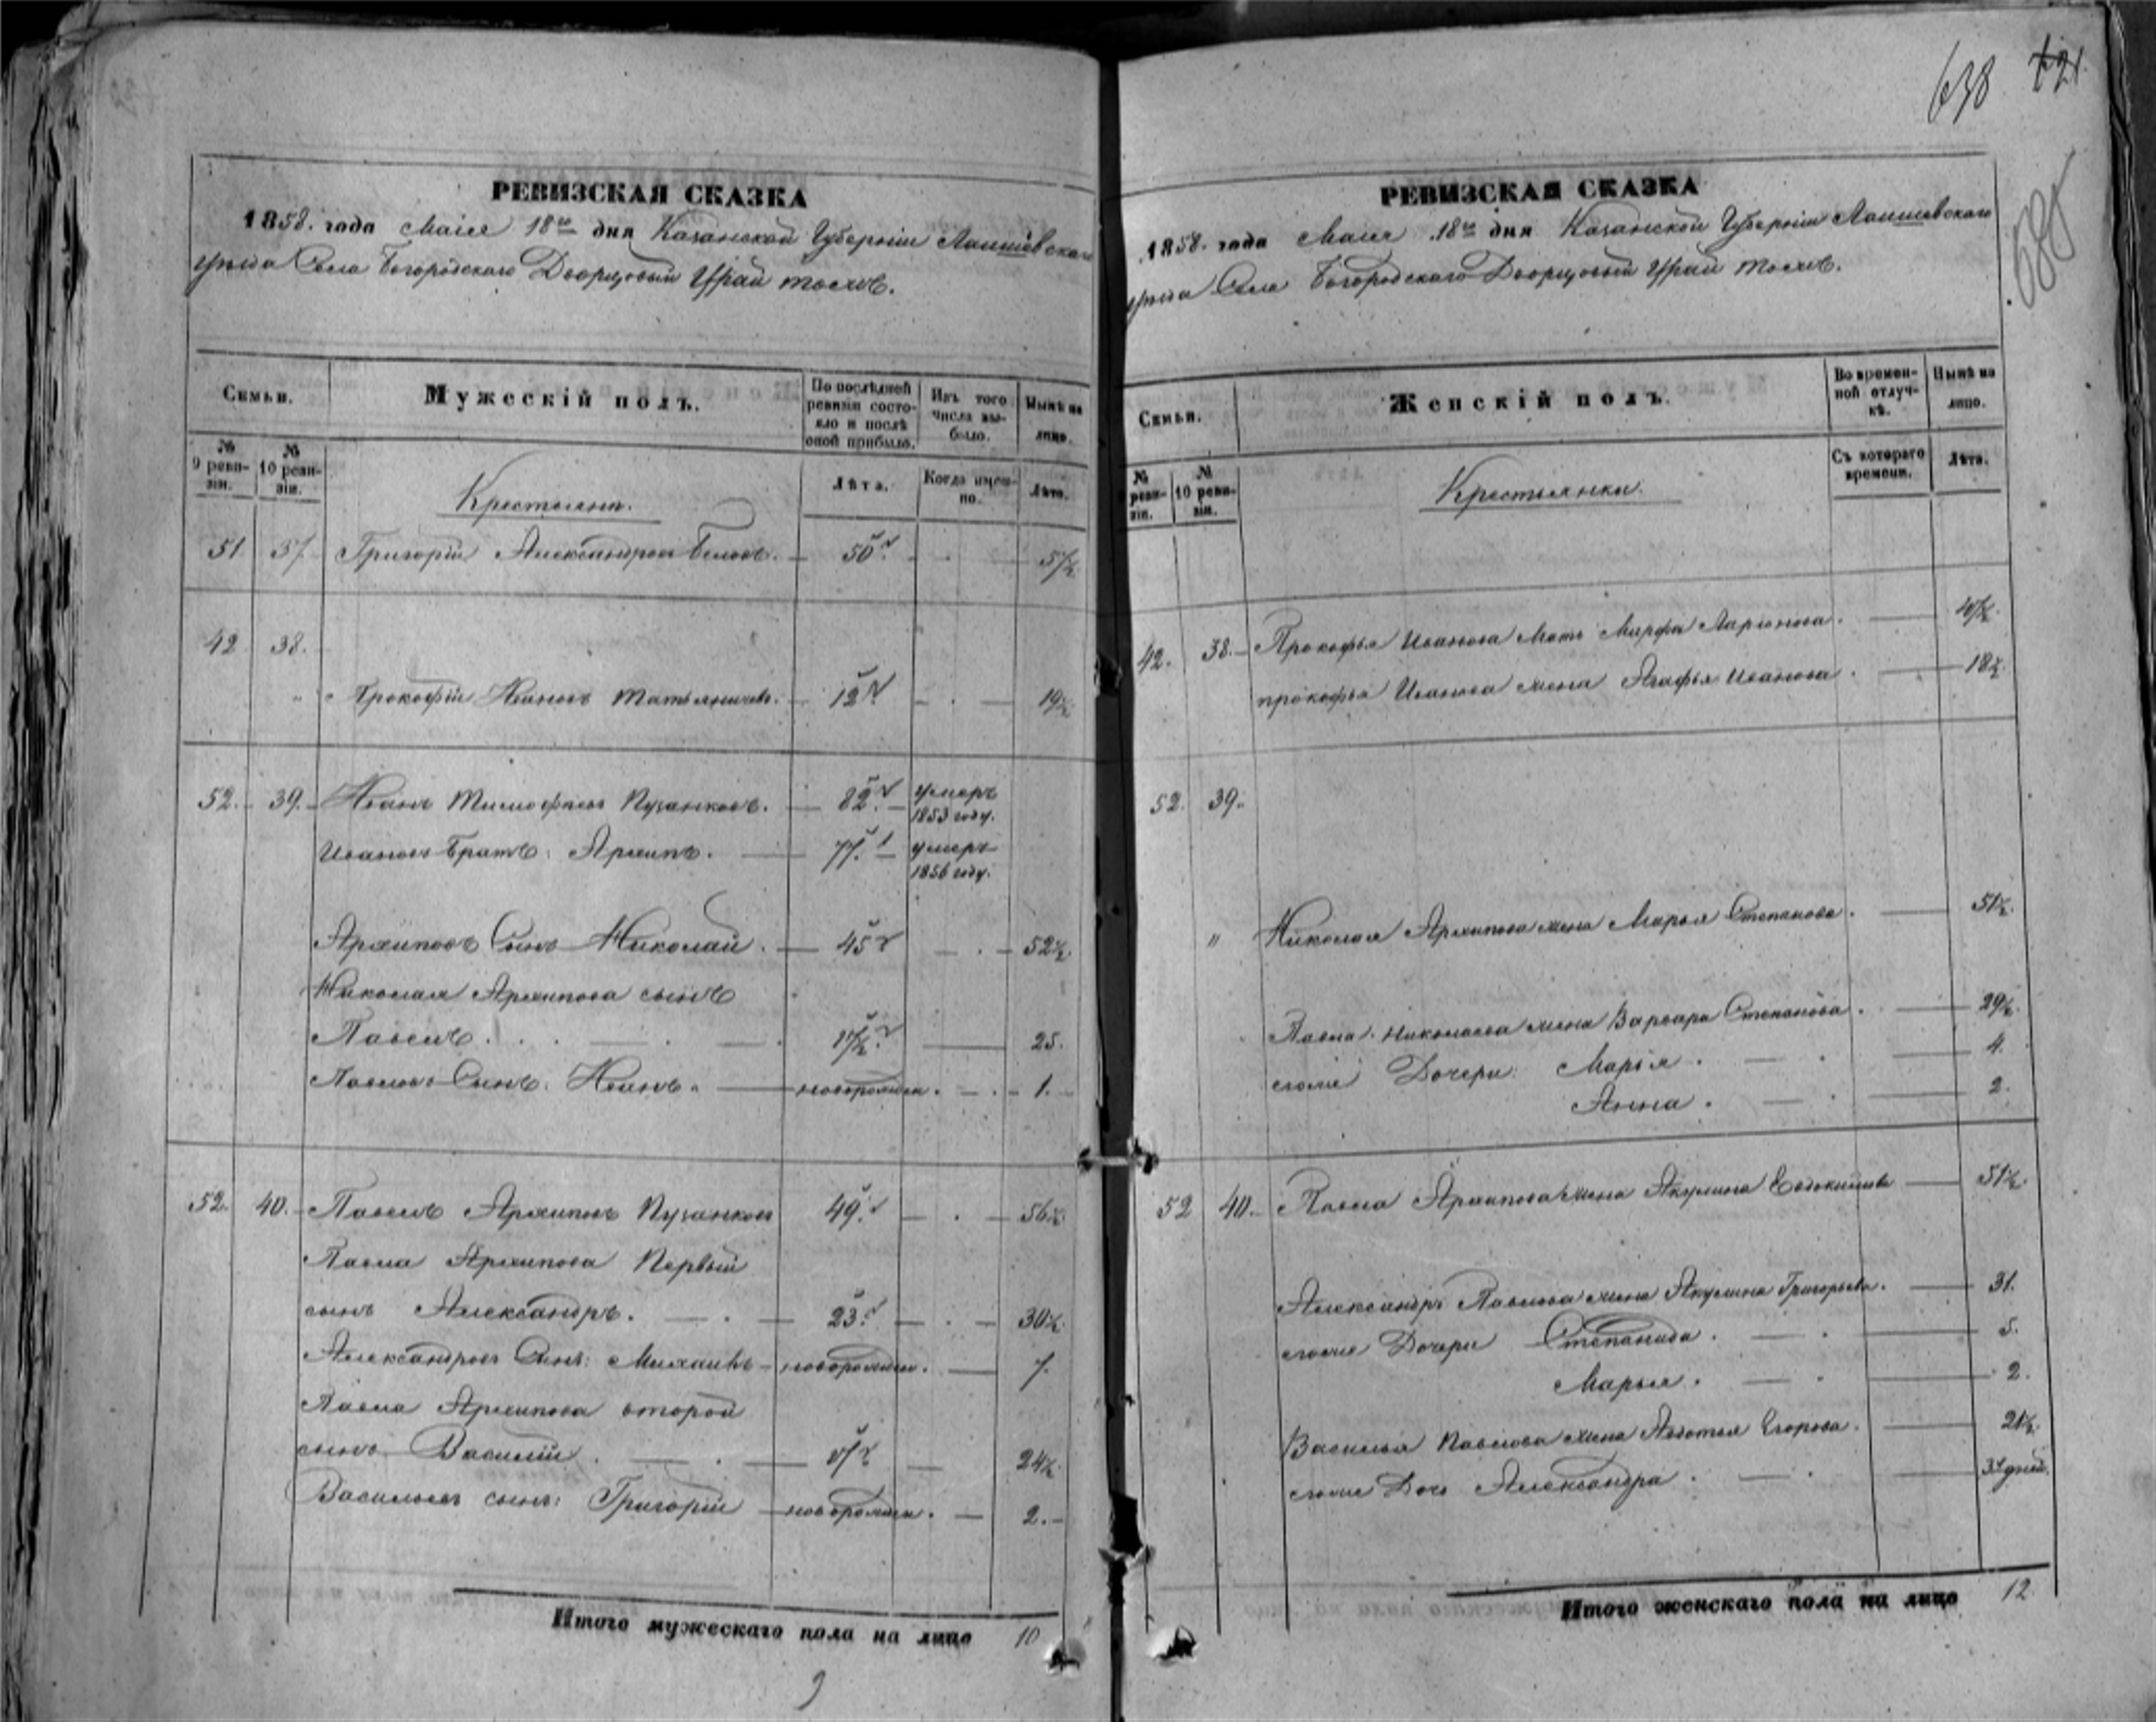 638 121.
685
РЕВИЗСКАЯ СКАЗКА
1858. года Маія 18го дня Казанской Губерніи Лаишевскаго
уѣзда Села Богородскаго Дворцовый Урай тожъ.
Семьи.
Мужескій полъ.
По послѣдней ревизіи состояло и послѣ оной прибыло.
Изъ того числа выбыло.
Нынѣ на лицо.
№ 9 ревизіи.
№ 10 ревизіи.
Крестьяни.
Лѣта.
Когда именно.
Лѣта.
51 37 Григорій Александровъ Беловъ. 50. 57½
42 38.
" Прокофій Ивановъ Татьяничевъ. 12. 19½
52. 39. Иванъ Тимофѣевъ Пузанковъ. 82. умеръ 1853 году.
Ивановъ братъ: Архипъ. 77. умеръ 1856 году.
Архиповъ Сынъ Николай. 45 52½
Николая Архипова сынъ
Павелъ. 17½. 25.
Павловъ Сынъ: Иванъ. новорожден. 1.
52. 40. Павелъ Архиповъ Пузанковъ 49. 56½
Павла Архипова Первый
сынъ Александръ. 23. 30½
Александровъ Сынъ: Михаилъ новорожден. 7.
Павла Архипова второй
сынъ Василій. 24½
Васильевъ сынъ: Григорій новорожден. 2.
Итого мужескаго пола на лицо 10
9
РЕВИЗСКАЯ СКАЗКА
1858. года Маія 18го дня Казанской Губерніи Лаишевскаго
уѣзда Села Богородскаго Дворцовый Урай тожъ.
Семьи.
Женскій полъ.
Во временной отлучкѣ.
Нынѣ на лицо.
№ ревизіи.
№ 10 ревизіи.
Крестьянки.
Съ котораго времени.
Лѣта.
42. 38. Прокофья Иванова Мать Марфа Ларіонова. 47½
прокофья Иванова жена Агафья Иванова. 18½
52. 39.
" Николая Архипова жена Марья Степанова. 51½
Павла Николаева жена Варвара Степанова. 29½
егоже Дочери: Марья. 4.
Анна. 2.
52 40. Павла Архипова жена Акулина Евдокимова 51½
Александра Павлова жена Акулина Григорьева. 31.
егоже Дочери Степанида. 5.
Марья. 2.
Василья Павлова жена Авдотья Егорова. 21½
егоже Дочь Александра. дней.
Итого женскаго пола на лицо 12.